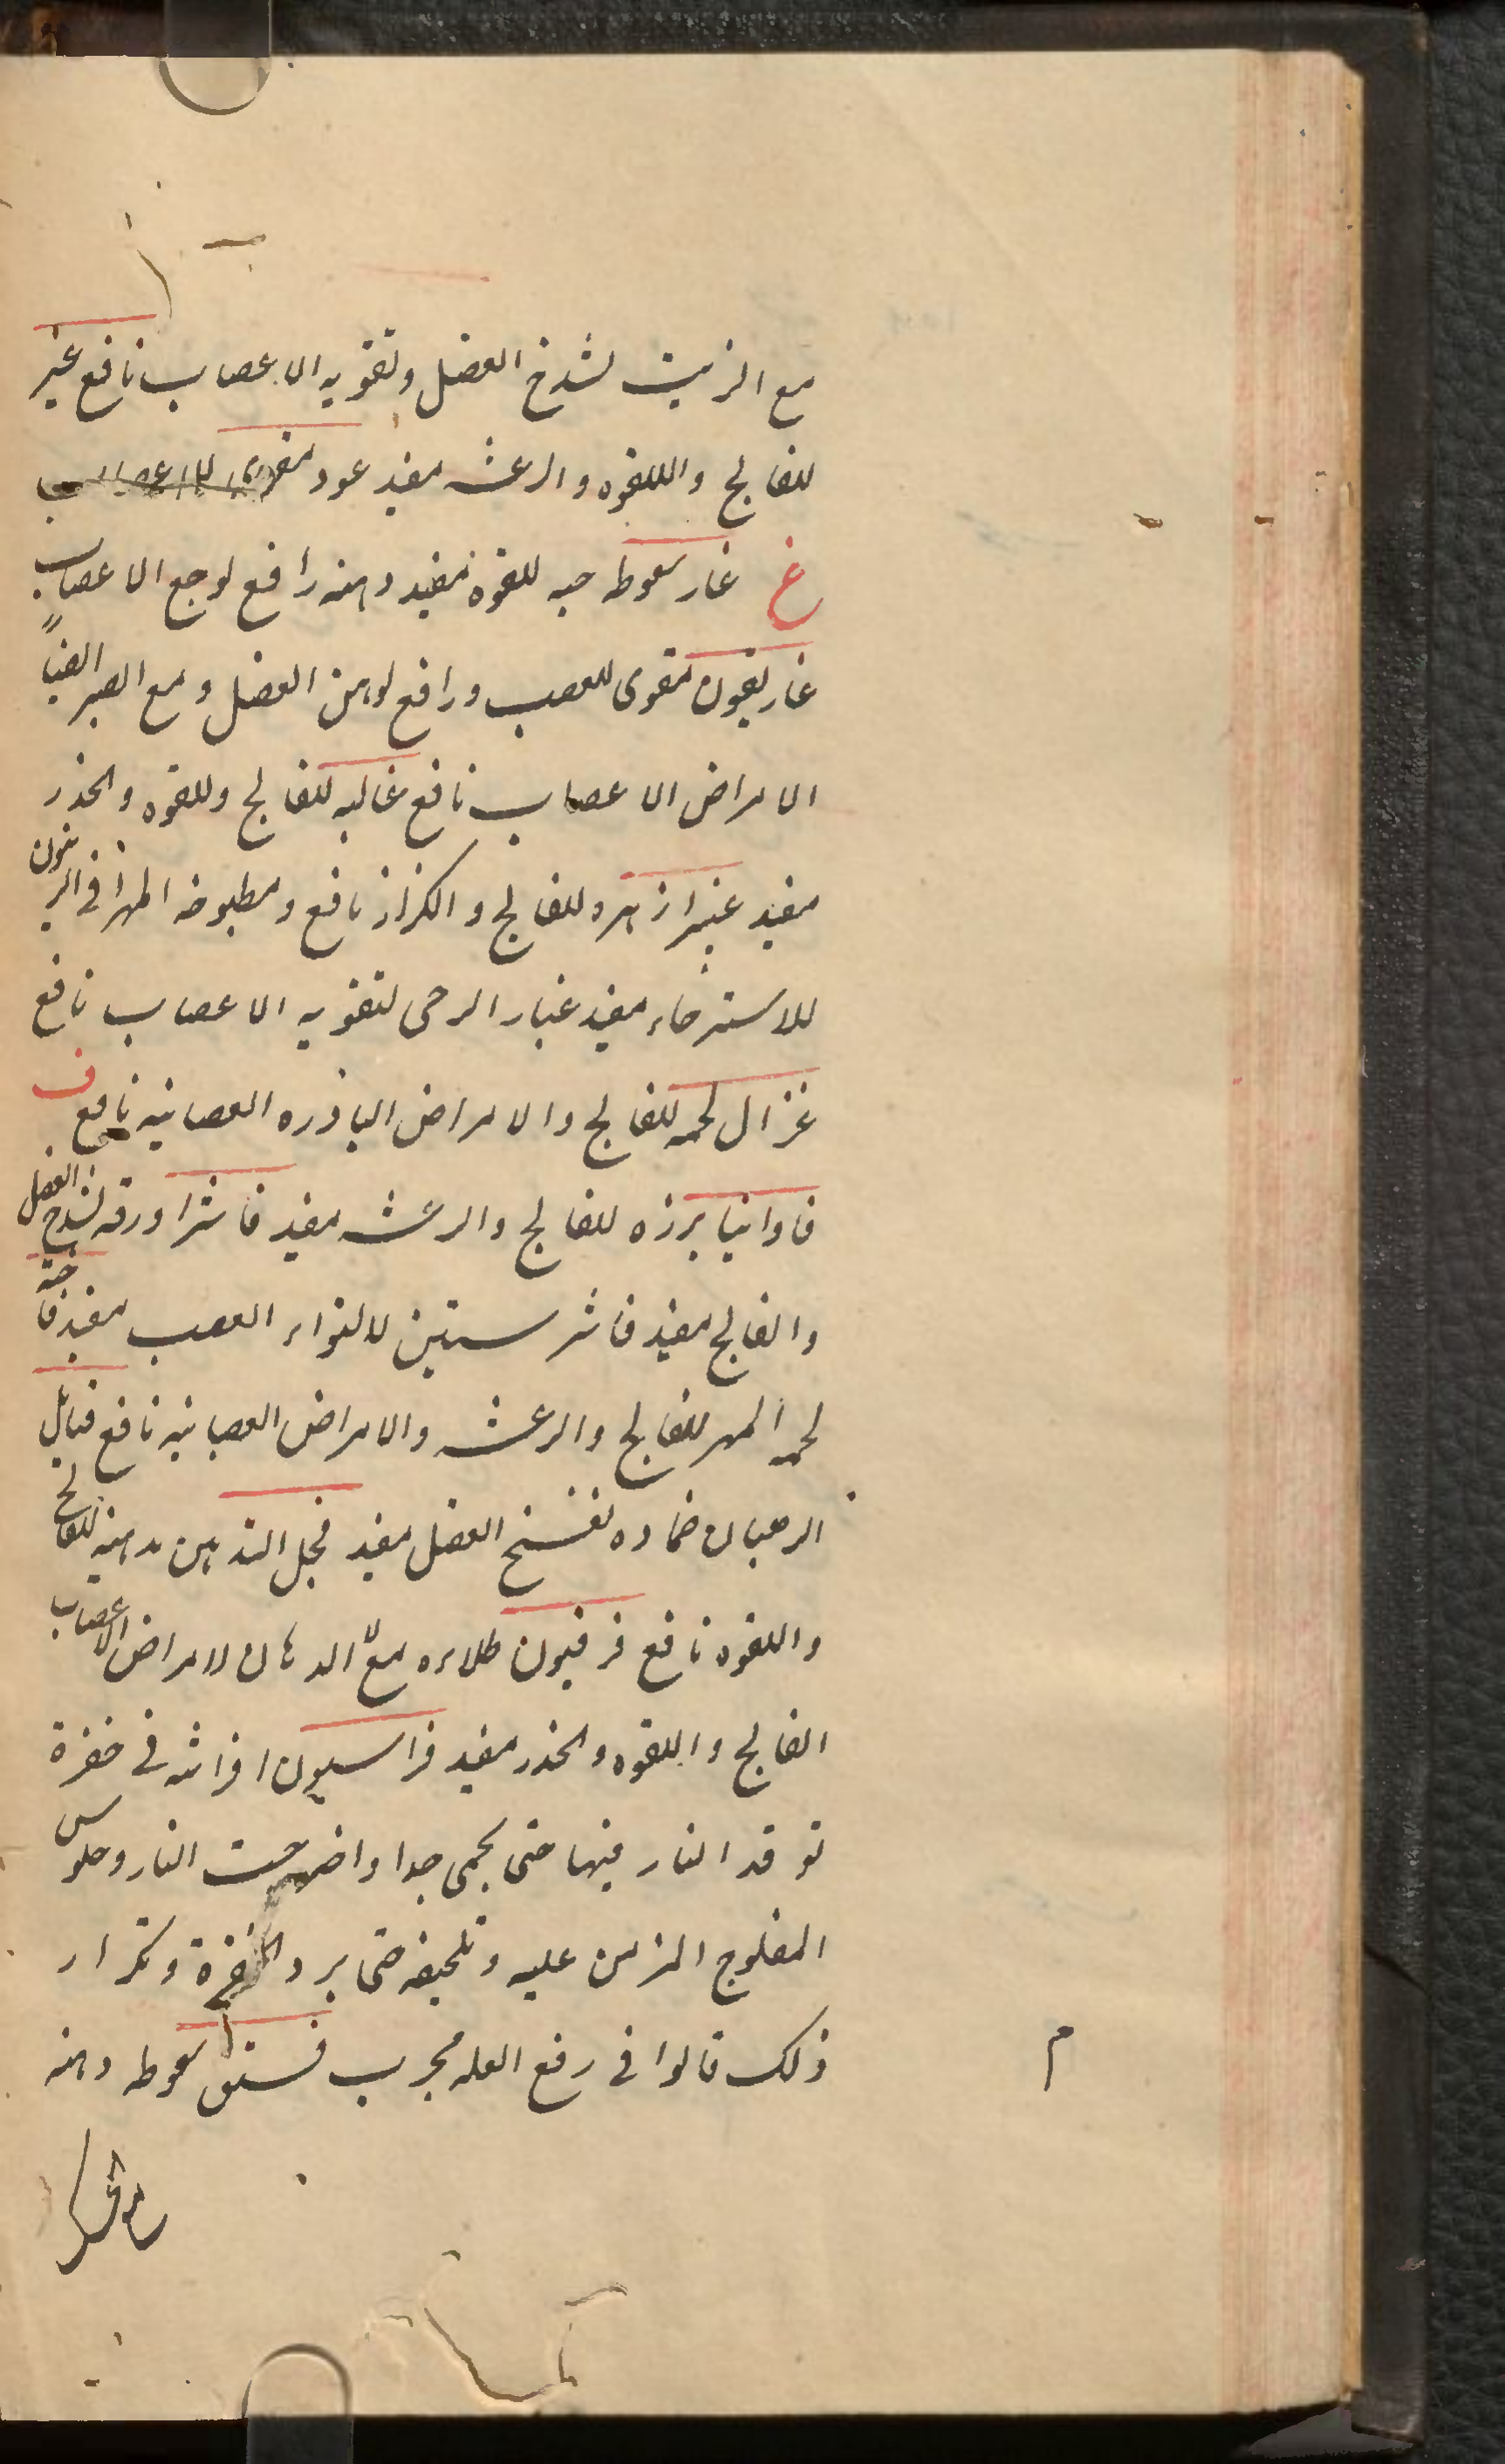 مع الزيت لشدخ العضل وتقويه الاعصاب نافع عنبر
للفالج واللقوه والرعشه مفيد عود مقوى للاعصاب
غ غار سعوط حبه للقوه مفيد دهنه رافع لوجع الاعصاب
غاريقون مقوى للعصب ورافع لوهن العضل ومع الصبر ايضاً
الامراض الاعصاب نافع غاليه للفالج وللقوه والخدر
مفيد غبيرا زهره للفالج والكزاز نافع ومطبوخه المهرا فى الزيتون
للاسترخاء مفيد غبار الرحى لتقويه الاعصاب نافع
غزال لحمه للفالج والامراض البادره العصبانيه نافع ف
فاوانيا برزه للفالج والرعشه مفيد فاشرا ورقه لشدخ العضل
والفالج مفيد فاشرستين لالتواء العصب مفيد فاخته
لحمه المهر للفالج والرعشه والامراض العصبانيه نافع فتائل
الرهبان ضماده لفسخ العضل مفيد فجل التدهين بدهنه للفالج
واللقوه نافع فرفيون طلاءه مع الدهان لامراض الاعصاب
الفالج واللقوه والخدر مفيد فراسيون افراشه فى حفرة
توقد النار فيها حتى يحمى جدا واخرجت النار وجلوس
المفلوج المزمن عليه وتلحيفه حتى برد الحفرة وتكرار
ذلك قالوا فى رفع العله مجرب فستق سعوط دهنه
م